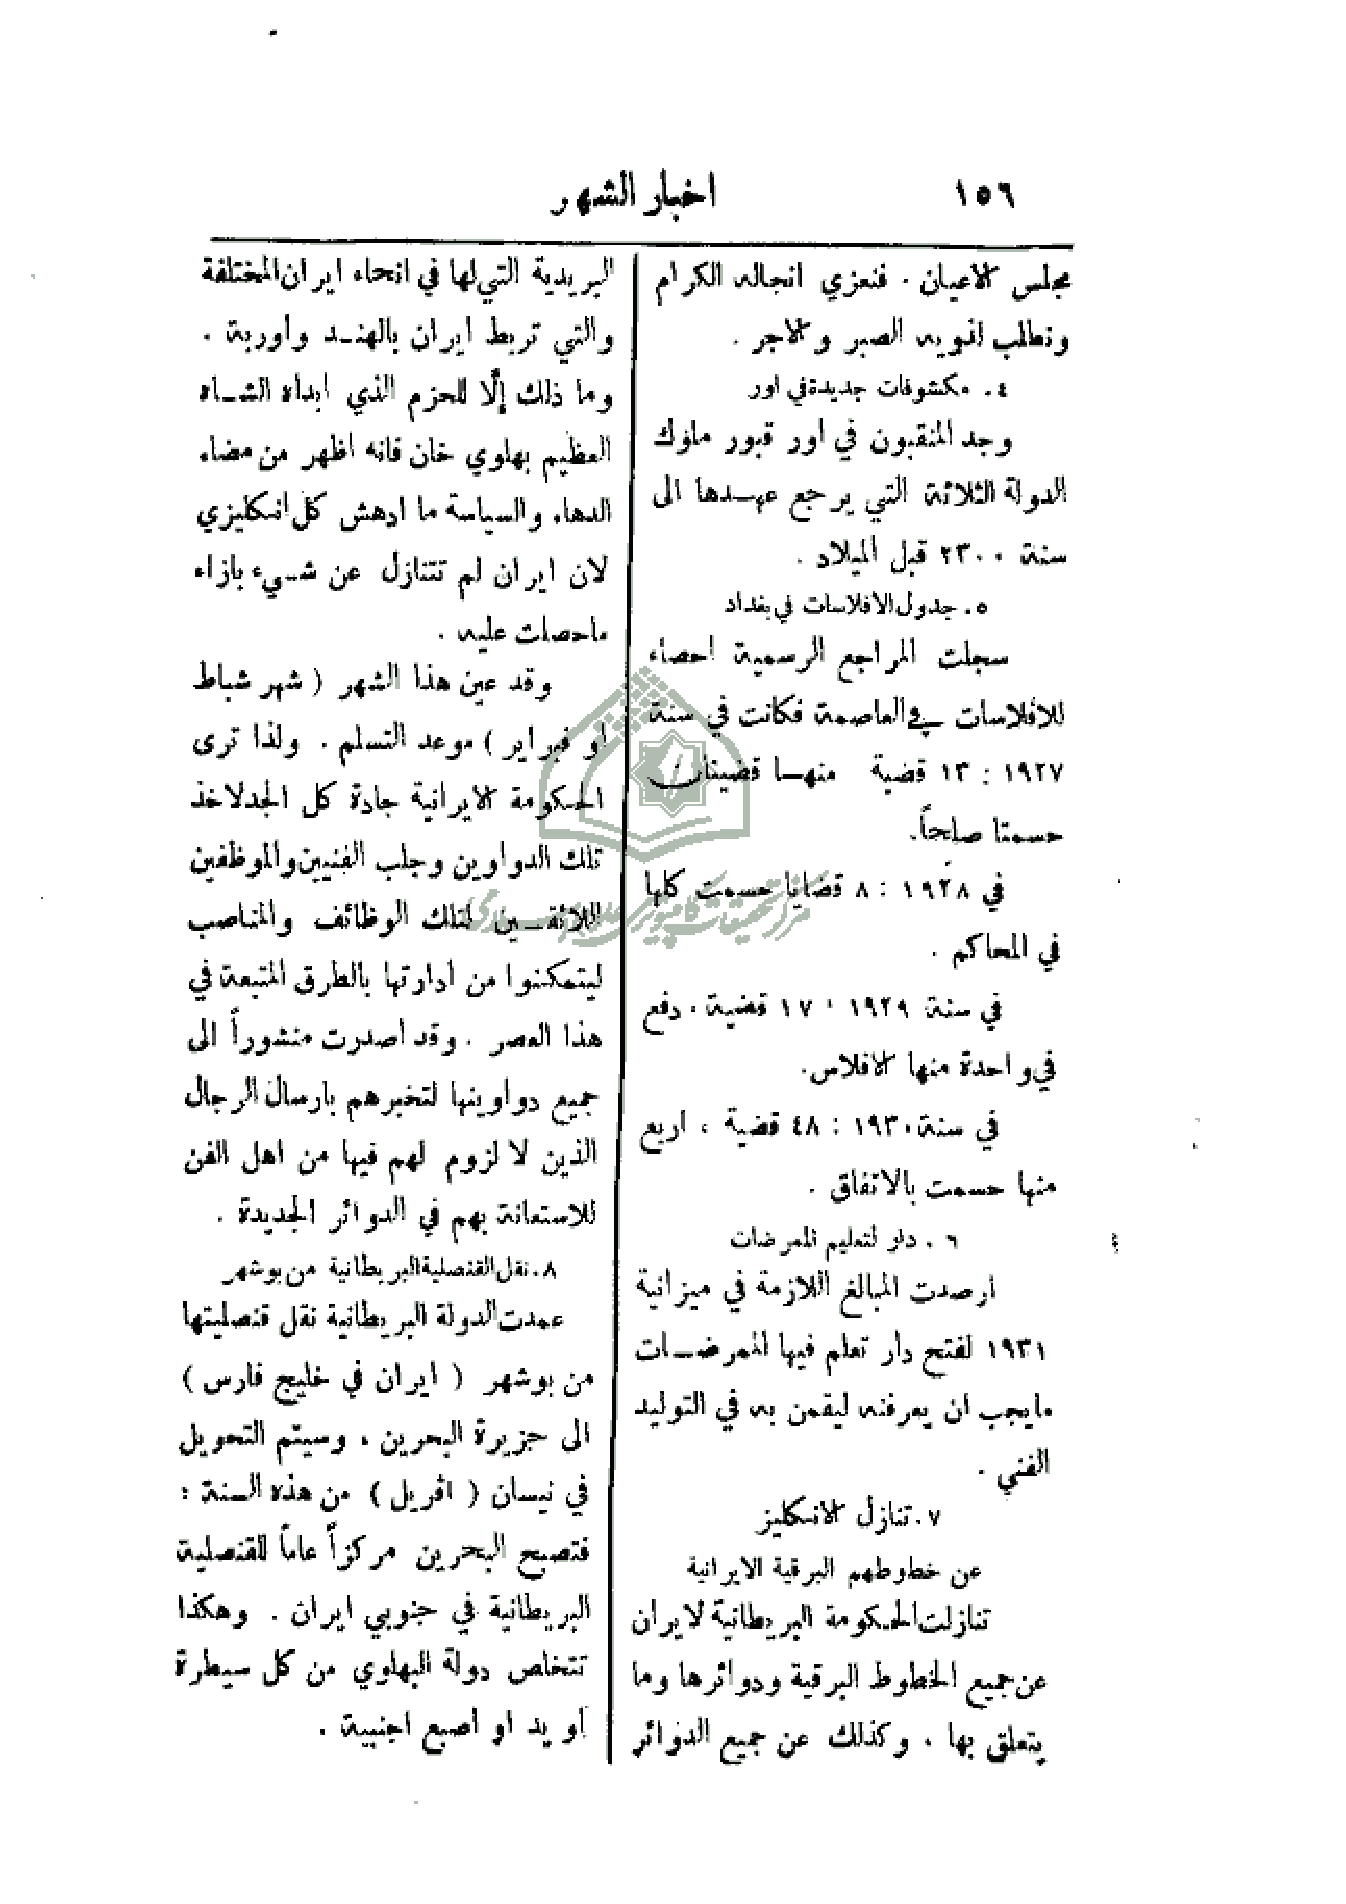 ١٥٦
اخبار الشهر
مجلس الاعيان . فنعزي انجاله الكرام
ونطلب لذويه الصبر والاجر .
٤. مكشوفات جديدة في اور
وجد المنقبون في اور قبور ملوك
الدولة الثلاثة التي يرجع عهدها الى
سنة ٢٣٠٠ قبل الميلاد .
٥. جدول الافلاسات في بغداد
سجلت المراجع الرسمية احصاء
للافلاسات في العاصمة فكانت في سنة
١٩٢٧ : ١٣ قضية منها قضيتان
حسمتا صلحاً.
في ١٩٢٨ : ٨ قضايا حسمت كلها
في المحاكم .
في سنة ١٩٢٩ : ١٧ قضية . دفع
في واحدة منها الافلاس.
في سنة ١٩٣٠ : ٤٨ قضية ، اربع
منها حسمت بالاتفاق .
٦ . دار لتعليم الممرضات
ارصدت المبالغ اللازمة في ميزانية
١٩٣١ لفتح دار تعلم فيها الممرضات
ما يجب ان يعرفنه ليقمن به في التوليد
الفني .
٧. تنازل الانكليز
عن خطوطهم البرقية الايرانية
تنازلت الحكومة البريطانية لايران
عن جميع الخطوط البرقية ودوائرها وما
يتعلق بها ، وكذلك عن جميع الدوائر
البريدية التي لها في انحاء ايران المختلفة
والتي تربط ايران بالهند واوربة .
وما ذلك إلّا للحزم الذي ابداه الشاه
العظيم بهلوي خان فانه اظهر من مضاء
الدهاء والسياسة ما ادهش كل انكليزي
لان ايران لم تتنازل عن شيء بازاء
ما حصلت عليه .
وقد عين هذا الشهر ( شهر شباط
او فبراير ) موعد التسلم . ولذا ترى
الحكومة الايرانية جادة كل الجد لاخذ
تلك الدواوين وجلب الفنيين والموظفين
اللائقين لتلك الوظائف والمناصب
ليتمكنوا من ادارتها بالطرق المتبعة في
هذا العصر . وقد اصدرت منشوراً الى
جميع دواوينها لتخبرهم بارسال الرجال
الذين لا لزوم لهم فيها من اهل الفن
للاستعانة بهم في الدوائر الجديدة .
٨. نقل القنصلية البريطانية من بوشهر
عمدت الدولة البريطانية نقل قنصليتها
من بوشهر ( ايران في خليج فارس )
الى جزيرة البحرين ، وسيتم التحويل
في نيسان ( افريل ) من هذه السنة :
فتصبح البحرين مركزاً عاماً للقنصلية
البريطانية في جنوبي ايران . وهكذا
تتخلص دولة البهلوي من كل سيطرة
او يد او اصبع اجنبية .